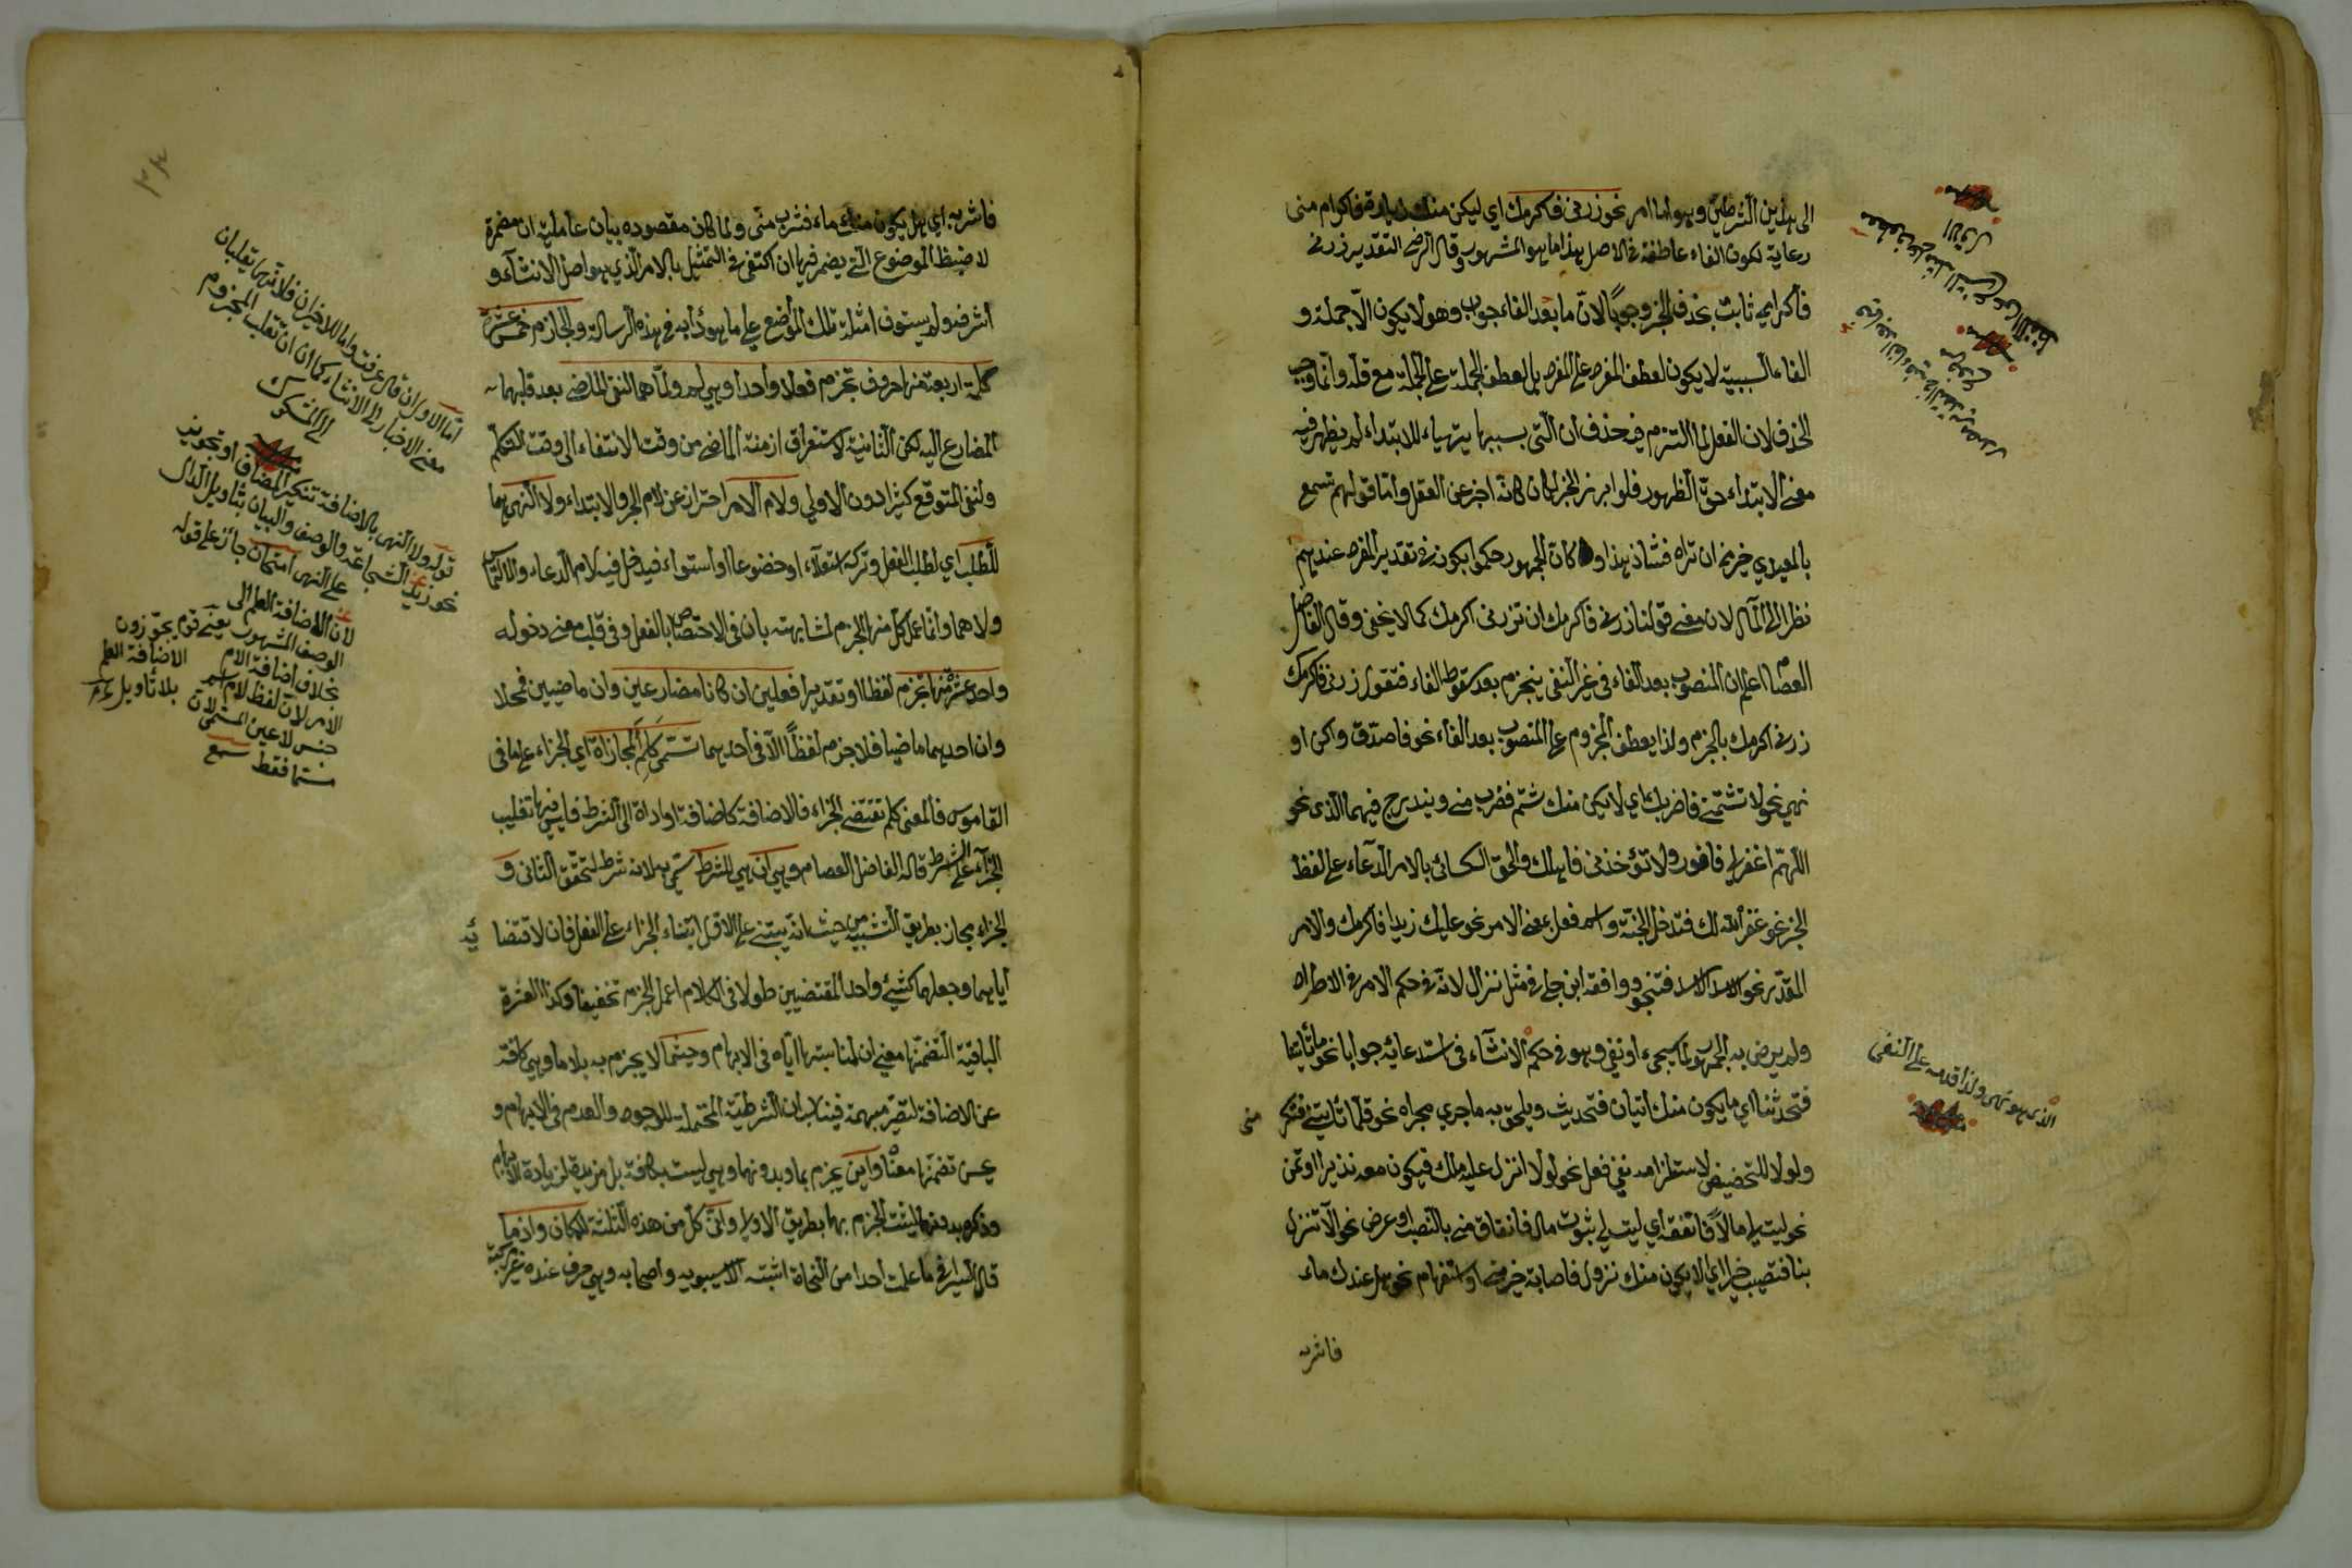 الى هذين الشرطين وهو اما امر نحو زرني فاكرمك اي ليكن منك زيارة فاكرام منى
رعاية لكون الفاء عاطفة في الاصل هذا ما هو المشهور وقال الرضى التقدير زرنى
فاكرامي ثابت بحذف الخبر وجوبًا لان ما بعد الفاء جواب وهو لا يكون الّا جملة و
الفاء السببية لا يكون لعطف المفرد على المفرد بل لعطف الجملة على الجملة مع قلة وانما وجب
الحذف لان الفعل لما التزم فيه حذف ان التى بسببها يتهياء للابتداء لم يظهر فيه
معنى الابتداء حق الظهور فلو ابرز الخبر لكان كانه اخبر عن الفعل وامّا قولهم تسمع
بالمعيدي خير من ان تراه فشاذ هذا و كان الجمهور حكموا بكونه في تقدير المفرد عندهم
نظرا الى المآل لان معنى قولنا زرنى فاكرمك ان تزرنى اكرمك كما لا يخفى وقال الفاضل
العصام اعلم ان المنصوب بعد الفاء فى غير النفى ينجزم بعد سقوط الفاء فتقول زرنى فاكرمك
زرنى اكرمك بالجزم ولذا يعطف المجزوم على المنصوب بعد الفاء نحو فاصدّق واكن او
نهي نحو لا تشتمنى فاضربك اي لا يكن منك شتم فضرب منى ويندرج فيهما الذى نحو
اللهمّ اغفر لى فافوز ولا تؤخذنى فاهلك والحق الكسائى بالامر الدعاء على لفظ
الخبر نحو غفر الله لك فتدخل الجنّة واسم فعل بمعنى الامر نحو عليك زيدا فاكرمك والامر
المقدّر نحو الاسد الاسد فتنجو ووافقه ابن جنى في مثل نزال لانه في حكم الامر في الاطراد
ولم يرض به الجمهور لما سيجىء او نفي وهو في حكم الانشاء فى استدعائه جوابا نحو ما تأتينا
فتحدثنا اي ما يكون منك اتيان فتحديث ويلحق به ما جرى مجراه نحو قلّما تأتينى فتكر
منى
ولولا للتحضيض لاستلزامه نفى فعل نحو لولا انزل عليه ملك فيكون معه نذيرا او تمن
نحو ليت لى مالًا فانفقه اي ليت لى ثبوت مال فانفاق منى بالنصب او عرض نحو الا تنزل
بنا فتصيب خيرا اي الا يكون منك نزول فاصابة خير منا واستفهام نحو هل عندك ماء
فاشربه
الذى هو نهى ولذا قدمه على النفى
فاشربه اي هل يكون منك ماء فشرب منى ولما كان مقصوده بيان عاملية ان مضمرة
لا ضبط الموضوع التى يضمر فيها ان اكتفى في التمثيل بالامر الذي هو اصل الانشآء و
اشرفه ولم يستوف امثلة تلك المواضع على ما هو دأبه فى هذه الرسالة والجازم خمس عشرة
كلمة اربعة منها حروف تجزم فعلا واحدا وهي لم ولمّا هما لنفى الماضى بعد قلبهما
المضارع اليه لكن الثانية لاستغراق ازمنة الماضى من وقت الانتفاء الى وقت التكلم
ولنفى المتوقع كثيرا دون الاولى ولام الامر احتراز عن لام الجر والابتداء ولا النهى هما
للطلب اي لطلب الفعل وتركه استعلاء او خضوعا او استواء فيدخل فيه لام الدعاء والالتماس
ولا هما وانما عمل كل منها الجزم لمشابهته بان فى الاختصاص بالفعل وفى قلب معنى دخوله
واحد عشر منها تجزم لفظا او تقديرا فعلين ان كانا مضارعين وان ماضيين فمحلا
وان احديهما ماضيا فلا جزم لفظًا الّا فى احديهما تسمّى كَلِمَ المجازاة اي الجزاء على ما فى
القاموس فالمعنى كلم تقتضى الجزاء فالاضافة كاضافة اداة الى الشرط فليس فيها تغليب
الجزاء على الشرط قاله الفاضل العصام وهي ان هي للشرط سمّى به لانه شرط لتحقّق الثانى و
الجزاء مجاز بطريق التشبيه من حيث انه يبتنى على الاوّل ابتناء الجزاء على الفعل فان لاقتضا
ئه
اياهما وجعلهما كشيئ واحد المقتضيين طولا فى الكلام اعمل الجزم تخفيفا وكذا العشرة
الباقية التضمنها معنى ان لمناسبتها ايّاه فى الابهام وحيثما لا يجزم به بلا ما وهي كافة
عن الاضافة لتصير مبهمة فيناسب ان الشرطيّة المحتملة للوجود والعدم فى الابهام و
عن تضمنها معناه واين يجزم بما وبدونها وهي ليست بكافة بل مزيدة لزيادة الابهام
وذكره بدونها ليثبت الجزم بها بطريق الاولى وانّى كل من هذه الثلثة للمكان واذما
قال السيرافى ما علمت احدا من النحاة اثبته الا سيبويه واصحابه وهي حرف عنده غير مركبة
امّا الاولان فلما عرفت واما الاخيران فلانهما تقلبان
معنى الاخبار الى الانشاء كما ان ان تقلب المجزوم
الى المشكوك
قوله ولا النهى بالاضافة تنكير المضاف او تجويز
نحو زيد الشجاعة والوصف والبيان بتاويل الدال
على النهى امتحان جائز على قوله
لان الاضافة العلم الى
الوصف المشهور يعنى قوم يجوزون
بخلاف اضافة الام الاضافة العلم
الامر لان لفظ لام اسم بلا تاويل
جنس لا عين المسمى لان
مستما فقط سمع